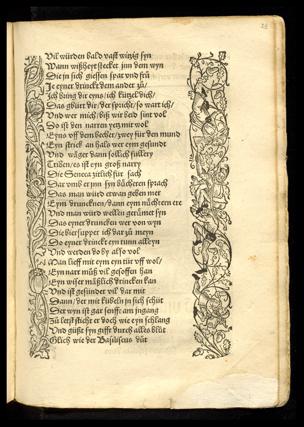 Vil würden bald vast witzig syn
Wann wißheyt stecket jnn dem wyn
Die jn sich giessen spat vnd frü
Je eyner drinckt dem ander zů /
Ich bring dir eyns / ich kützel dich /
Das gbürt dir / der spricht / so wart ich /
Vnd wer mich / biß wir beid sint vol
Do ist den narren yetz mit wol
Eyns vff dem becher / zwey für den mund
Eyn strick an hals wer eym gesundt
Vnd wäger dann sollich füllery
Triben / es ist eyn groß narry
Die Seneca zitlich für sach
Dar vmb er jnn syn bücheren sprach
Das man würd ettwan geben mer
Eym drunckuen / dann eym nüchteren ere
Vnd man würd wellen gerümet syn
Das eyner druncken wer von wyn
Die biersupper ich dar zů meyn
Do eyner drinckt eyn tunn alleyn
Vnd werden do by also vol
Man lieff mit eym eyn tür vff wol /
Eyn narr můß vil gesoffen han
Eyn wiser mäßlich drincken kan
Vnd ist gesünder vil dar mit
Dann / der mit küblen jn sich schüt
Der wyn ist gar senfft am jngang
Zů letst sticht er doch wie eyn schlang
Vnd güßt syn gifft durch alles blůt
Glich wie der Basiliscus důt